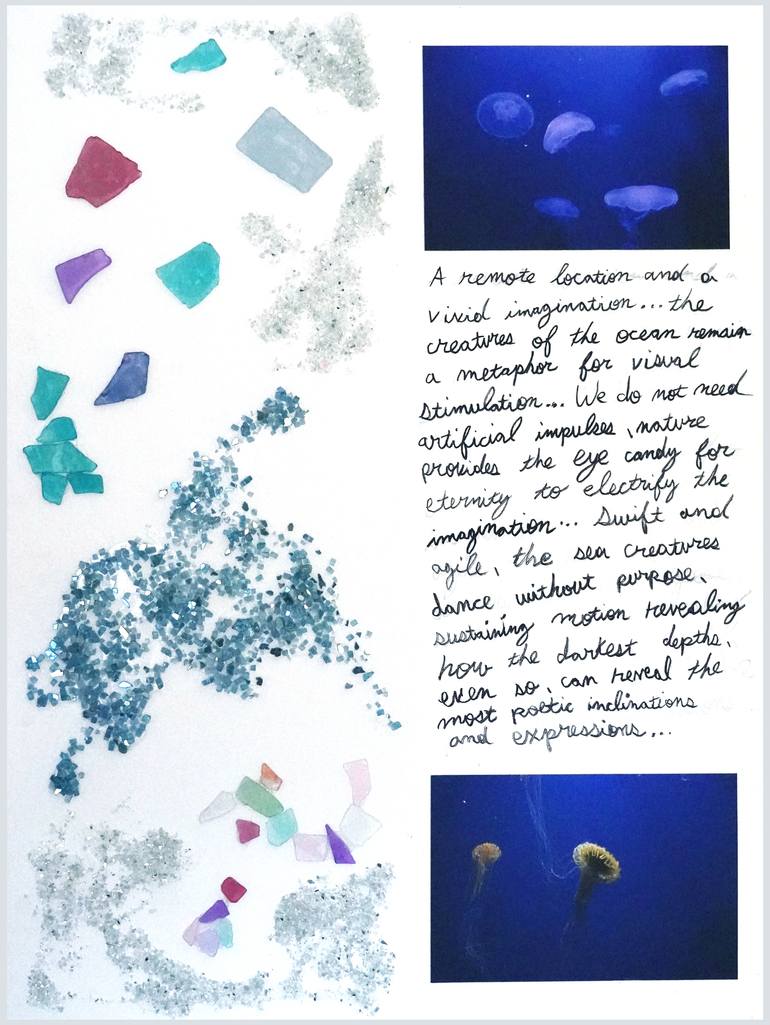 A remote location and a
vivid imagination... the
creatures of the ocean remain
a metaphor for visual
stimulation... We do not need
artificial impulses, nature
provides the eye candy for
eternity to electrify the
imagination... Swift and
agile, the sea creatures
dance without purpose,
sustaining motion revealing
how the darkest depths,
even so, can reveal the
most poetic inclinations
and expressions...